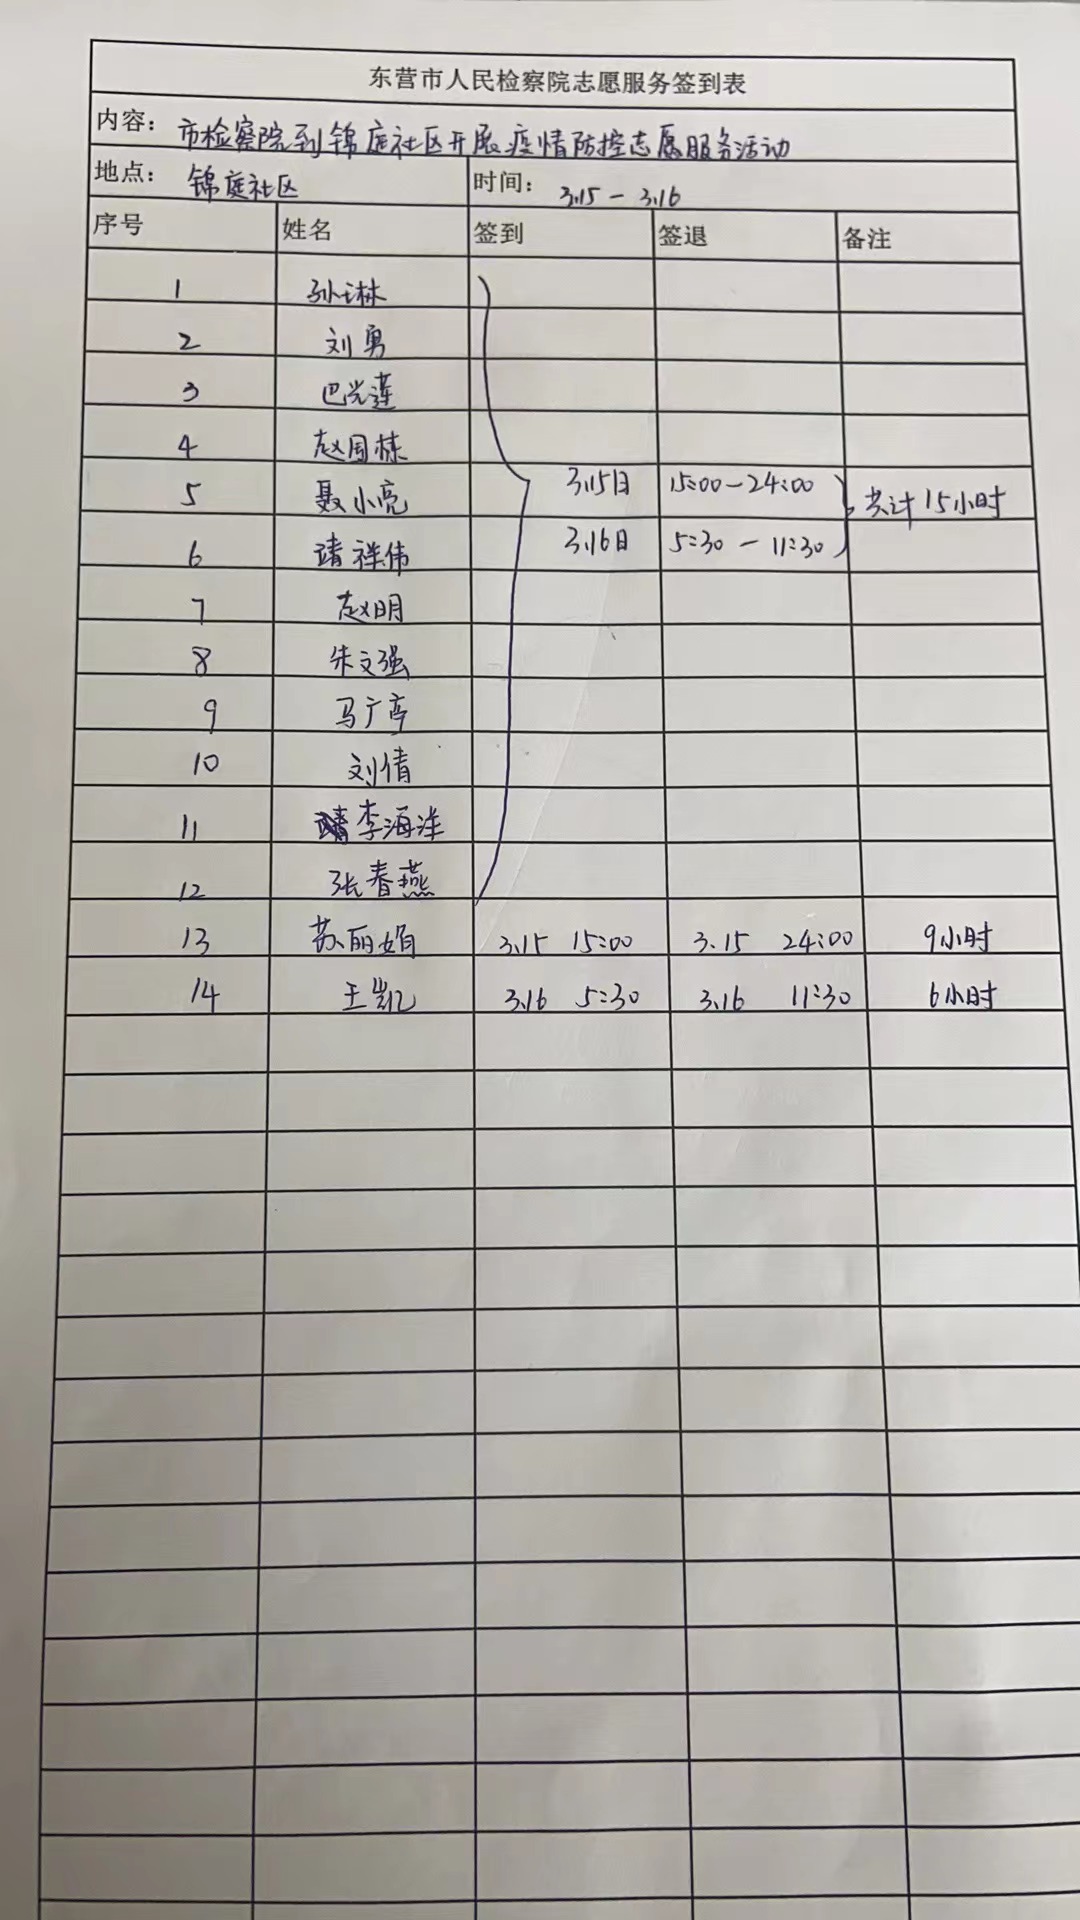 东营市人民检察院志愿服务签到表
内容：市检察院到锦庭社区开展疫情防控志愿服务活动
地点：锦庭社区 时间：3.15－3.16
序号 姓名 签到 签退 备注
1 孙琳
2 刘勇
3 巴光莲
4 赵国栋
5 聂小亮 3.15日 15:00－24:00 共计15小时
6 靖祥伟 3.16日 5:30－11:30
7 赵明
8 朱文强
9 马广亭
10 刘倩
11 李海洋
12 张春燕
13 苏丽娟 3.15 15:00 3.15 24:00 9小时
14 王凯 3.16 5:30 3.16 11:30 6小时